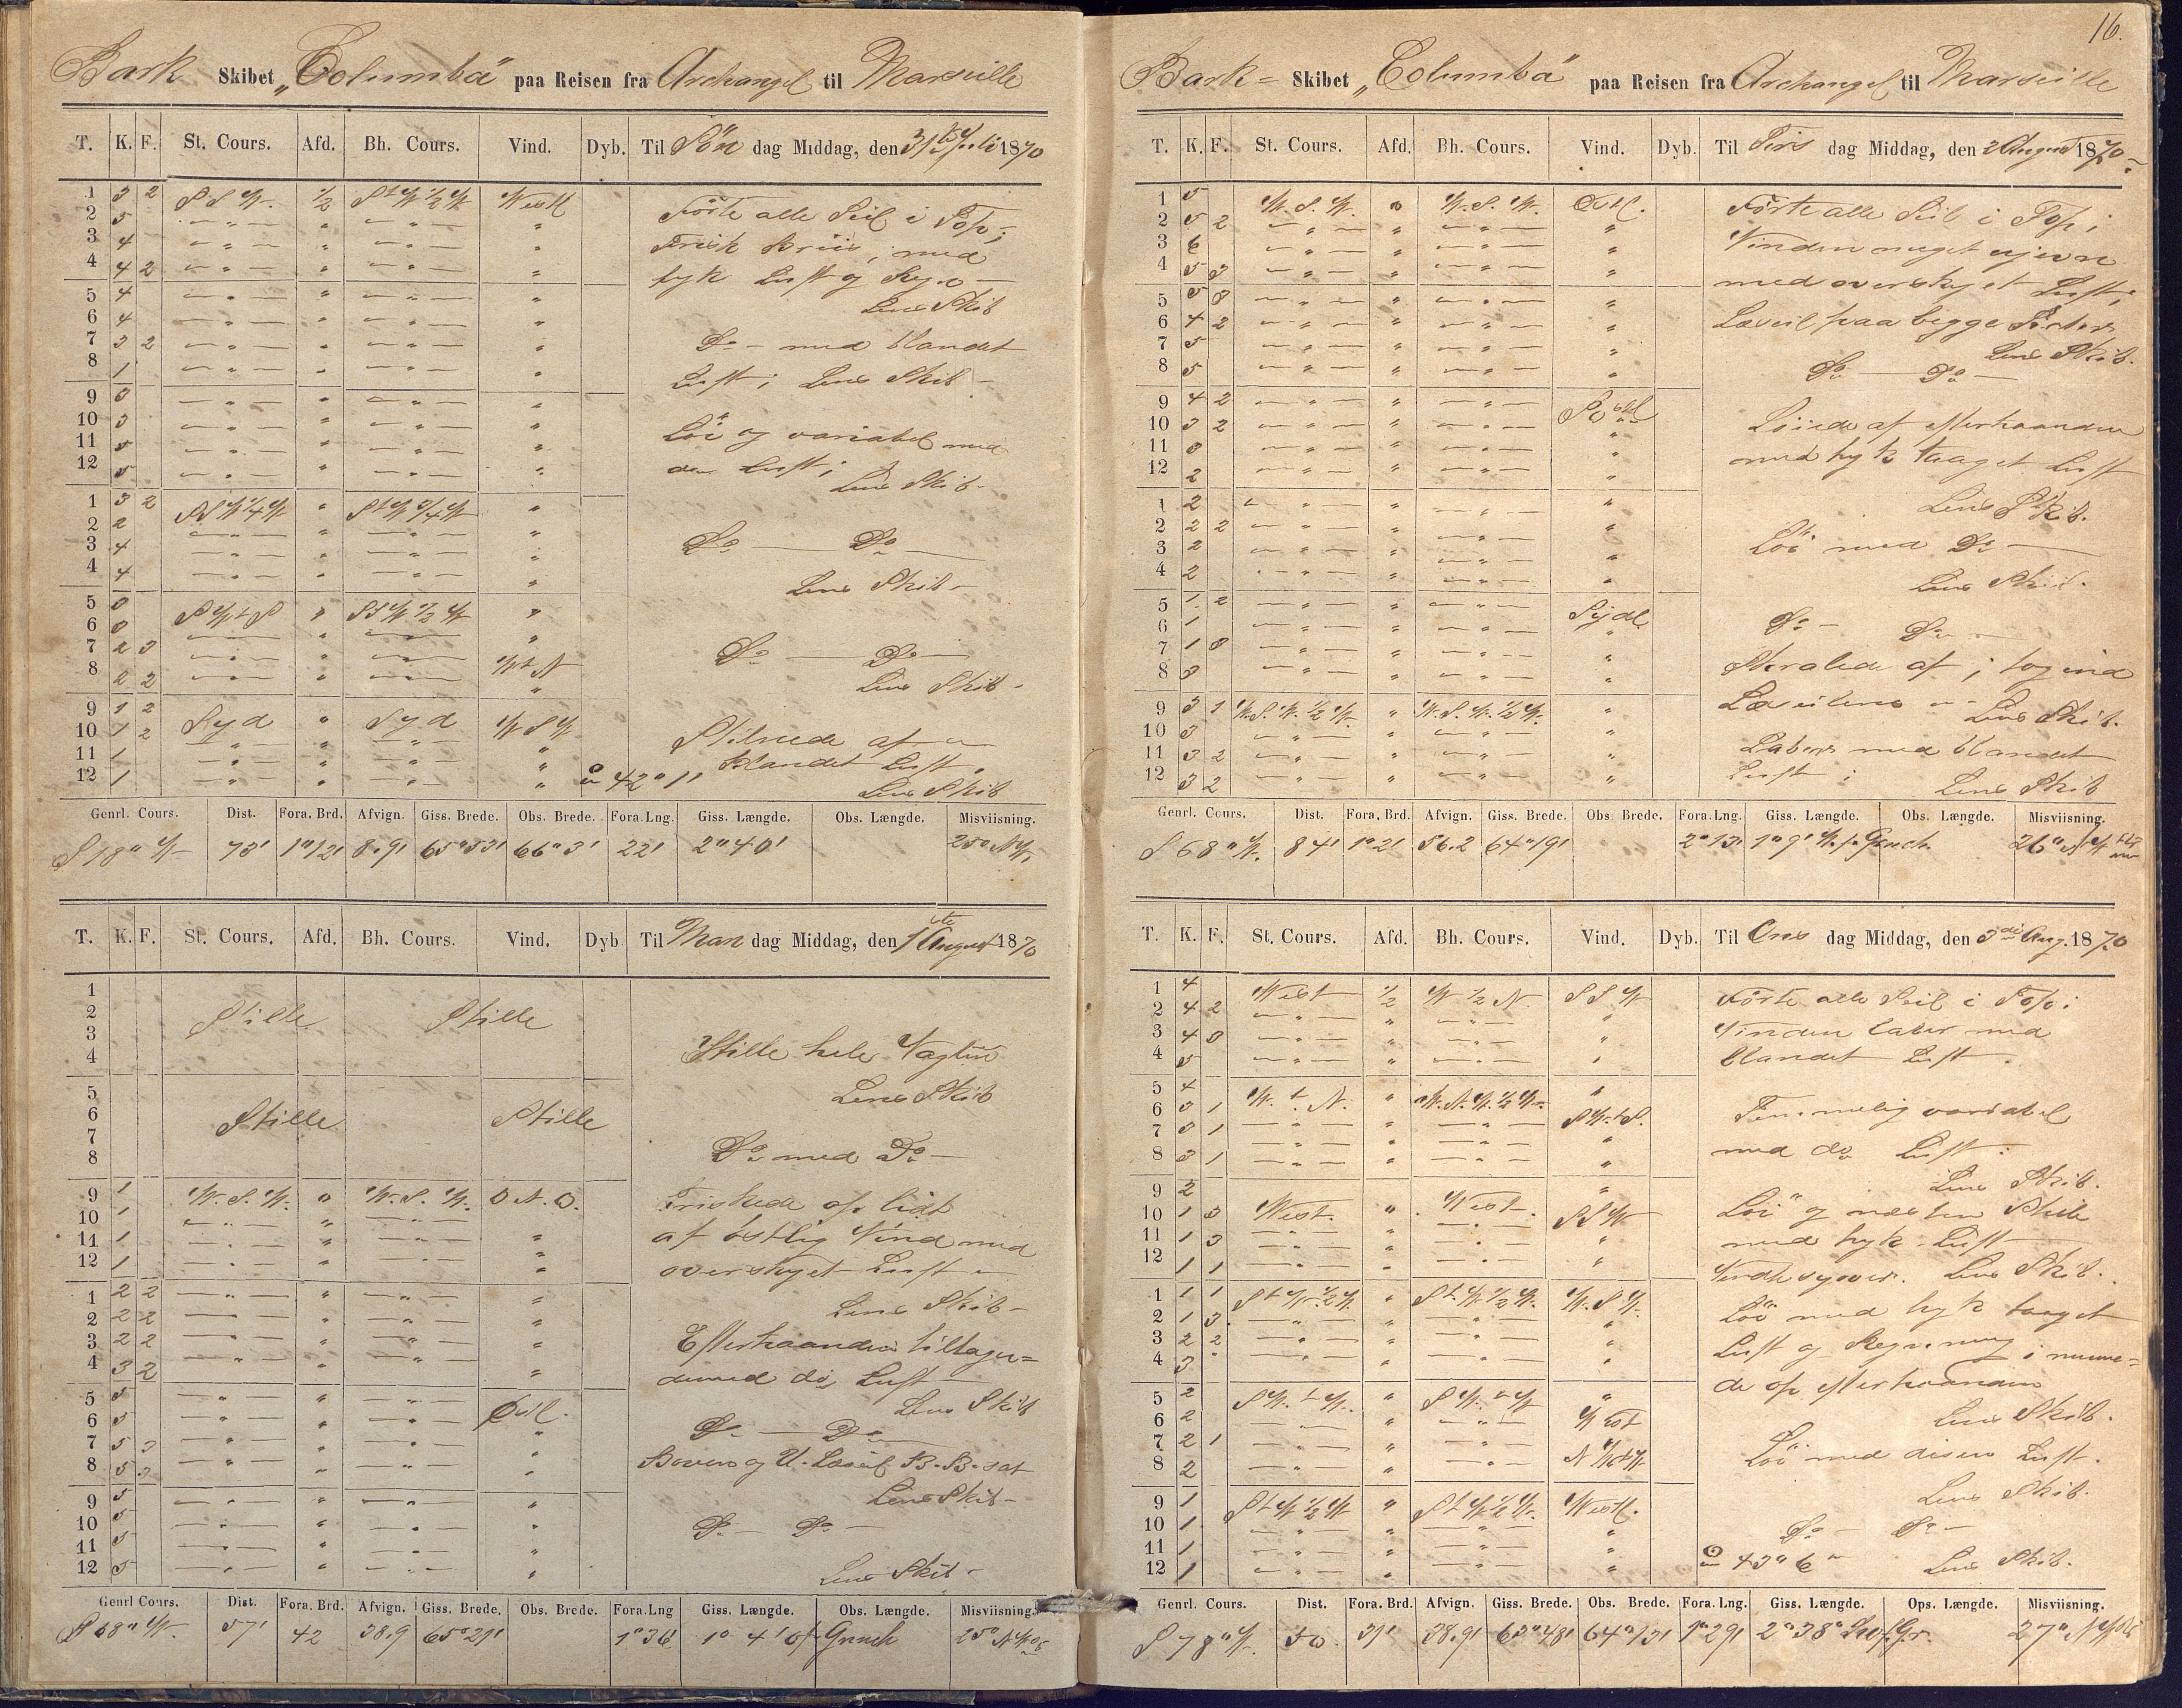 Bark Skibet „Columba" paa Reisen fra Archangel til Marseille
T. K. F. St. Cours. Afd. Bh. Cours. Vind. Dyb. Til Søn dag Middag, den 31te Juli 1870
1 3 2 S S W. 1/2 St W 1/2 W Westl Förte alle Seil i Top;
2 5 Frisk Briis, med
3 4
4 4 2 tyk Luft og Regn
5 4 Lens Skib
6 4
7 3 2 Do - med blandet
8 1 Luft; Lens Skib
9 3
10 3 Löi og variabel med
11 5 do Luft;
12 5 Lens Skib
1 3 2 SSW 1/4 W " StW 3/4 W "
2 2
3 4 Do — Do
4 4 Lens Skib
5 3 S W t S " SSW 1/2 W "
6 3
7 2 3 Do — Do
8 2 2 Wt N Lens Skib
9 1 2 Syd " Syd W S W
10 1 2 Stilnede af
11 1 blandet Luft
12 1 42° 1' Lens Skib
Genrl. Cours. Dist. Fora. Brd. Afvign. Giss. Brede. Obs. Brede. Fora.Lng. Giss. Længde. Obs. Længde. Misviisning.
S 18° W 73' 1°12' 8.9' 65°53' 66°3' 22' 2°40' 25° NW
T. K. F. St. Cours. Afd. Bh. Cours. Vind. Dyb Til Man dag Middag, den 1ste August 1870
1
2 Stille Stille
3 Stille hele Vagten
4
5 Lens Skib
6 Stille Stille
7
8 Do med Do
9 1 W. S. W. " W. S. W. O N. O. Friskede op lidt
10 1 af östlig Vind med
11 1
12 1 overskyet Luft
1 2 2 Lens Skib
2 2 2
3 2 2 Efterhaanden tiltagen=
4 3 2 de med do Luft
5 5 Östl. Lens Skib
6 5 Do — Do
7 5 3 Boven og U. Læseil B.B. sat
8 5 3
9 5 Lens Skib
10 5 Do — Do
11 5
12 5 Lens Skib
Genrl Cours. Dist. Fora. Brd. Afvign. Giss. Brede. Obs. Brede. Fora.Lng Giss. Længde. Obs. Længde. Misviisning.
S 68° W. 57' 42 38.9 65°21' 1°36' 1° 4' Grnch 25° NW
16.
Bark- Skibet „Columba" paa Reisen fra Archangel til Marseille
T. K. F. St. Cours. Afd. Bh. Cours. Vind. Dyb. Til Tirs dag Middag, den 2 August 1870
1 5 W. S. W. " W. S. W. Östl. Förte alle Seil i Top;
2 5 2 Vinden meget ujevn
3 6
4 5 3 med overskyet Luft;
5 5 3
6 4 2 Læseil paa begge Sider
7 5 Lens Skib.
8 5 Do — Do
9 4 2
10 3 2 Löiede af efterhaanden
11 3
12 2 med tyk taaget Luft
1 2 Lens Skib.
2 2 2
3 2 Löi med Do
4 2 Lens Skib.
5 1 2 Sydl
6 1 Do — Do
7 1 3 Skralede af; tog ind
8 3
9 3 1 W. S. W. 1/2 W. " W. S. W. 1/2 W. " Læseilene Lens Skib.
10 3
11 3 2 Laber med blandet
12 3 2 Luft; Lens Skib
Genrl. Cours. Dist. Fora. Brd. Afvign. Giss. Brede. Obs. Brede. Fora.Lng. Giss. Længde. Obs. Længde. Misviisning.
S 68° W. 84' 1°21' 56.2 64°19' 2°13' 1°9' W. f. Grnch. 26° NW
T. K. F. St. Cours. Afd. Bh. Cours. Vind. Dyb. Til Ons dag Middag, den 3die Aug. 1870
1 4 West 1/2 W 1/2 N. S S W Förte alle Seil i Top;
2 4 2 Vinden laber med
3 4 3
4 5 blandet Luft.
5 4 W. t. N. " W. N. W. 1/2 W. "
6 3 1 SW. t S. Temmelig variabel
7 3 1
8 3 1 med do Luft.
9 2 Lens Skib.
10 1 3 West. " West. SSW Löi og næsten Stille
11 1 3 med tyk Luft
12 1 1 Lens Skib.
1 1 1 St W. 1/2 W. St. W. 1/2 W. W. S W. Löi med tyk taaget
2 1 3
3 2 2 Luft og Regn,
4 3
5 2 SW. t W. " SW. t W " de op efterhaanden
6 2 West Lens Skib.
7 2 1
8 2 N W t W Löi med disen Luft.
9 1 St W 1/2 W " St W 1/2 W. Westl. Lens Skib.
10 1 Do — Do
11 1
12 1 43° 6' Lens Skib.
Genrl. Cours. Dist. Fora. Brd. Afvign. Giss. Brede. Obs. Brede. Fora.Lng. Giss. Længde. Ops. Længde. Misviisning.
S 78° W. 50. 31' 38.9' 63°48' 64°13' 1°29' 2°38' f. Gr. 27° NW